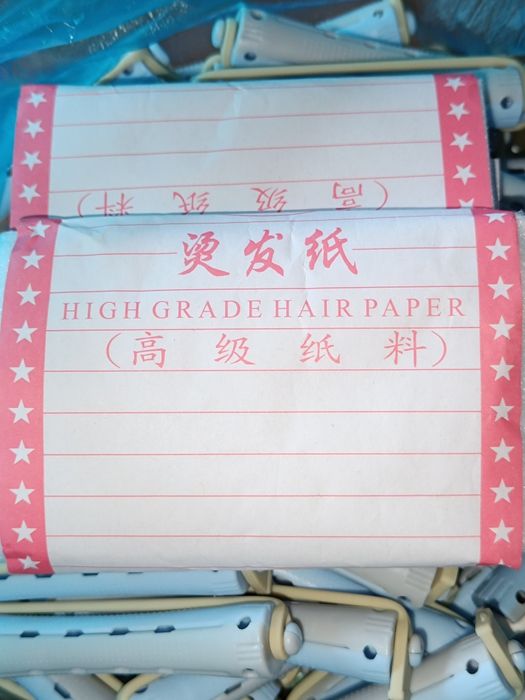 (高 级 纸 料)
烫发纸
HIGH GRADE HAIR PAPER
(高 级 纸 料)